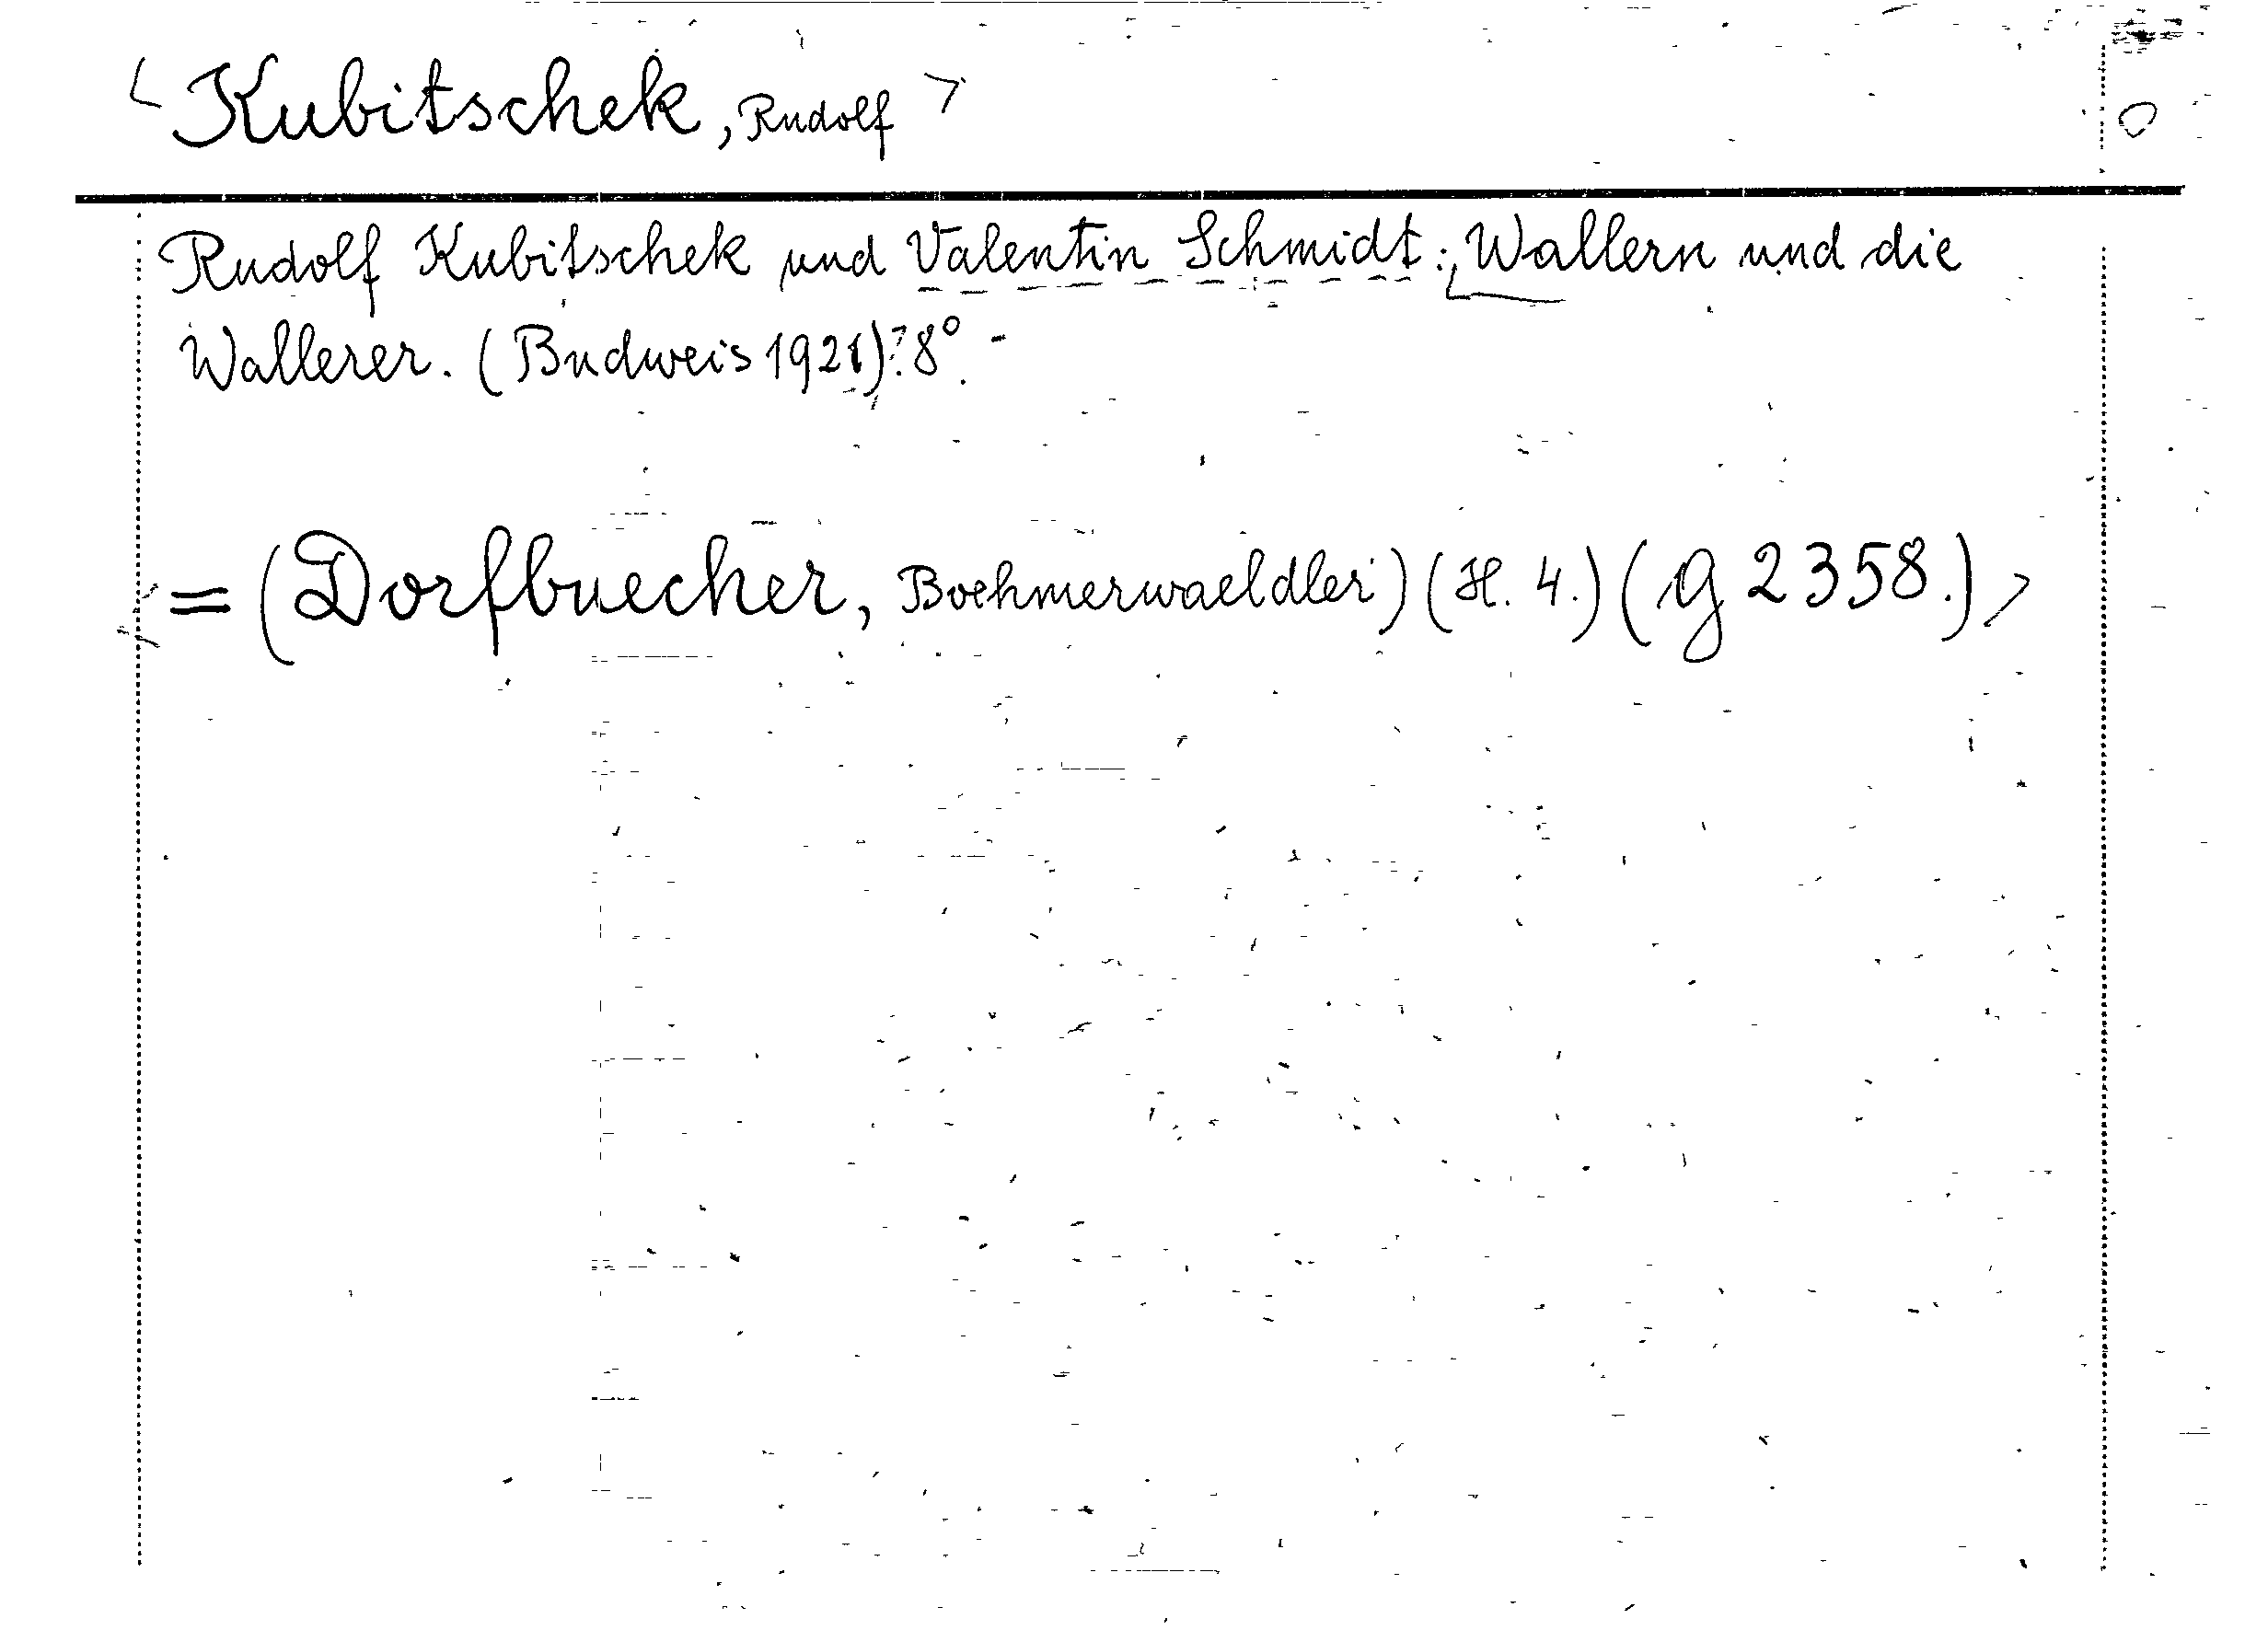 < Kubitschek, Rudolf >
Rudolf Kubitschek und Valentin Schmidt: Wallern und die
Wallerer. (Budweis 1921)? 8°.
= (Dorfbuecher, Boehmerwaeldler) (H. 4.) (g 2358.)>